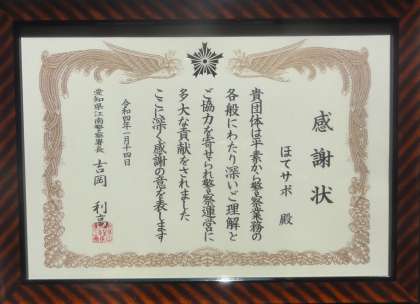 感謝状
ほてサポ 殿
貴団体は平素から警察業務の
各般にわたり深いご理解と
ご協力を寄せられ警察運営に
多大な貢献をされました
ここに深く感謝の意を表します
令和四年一月十四日
愛知県江南警察署長 吉岡 利高